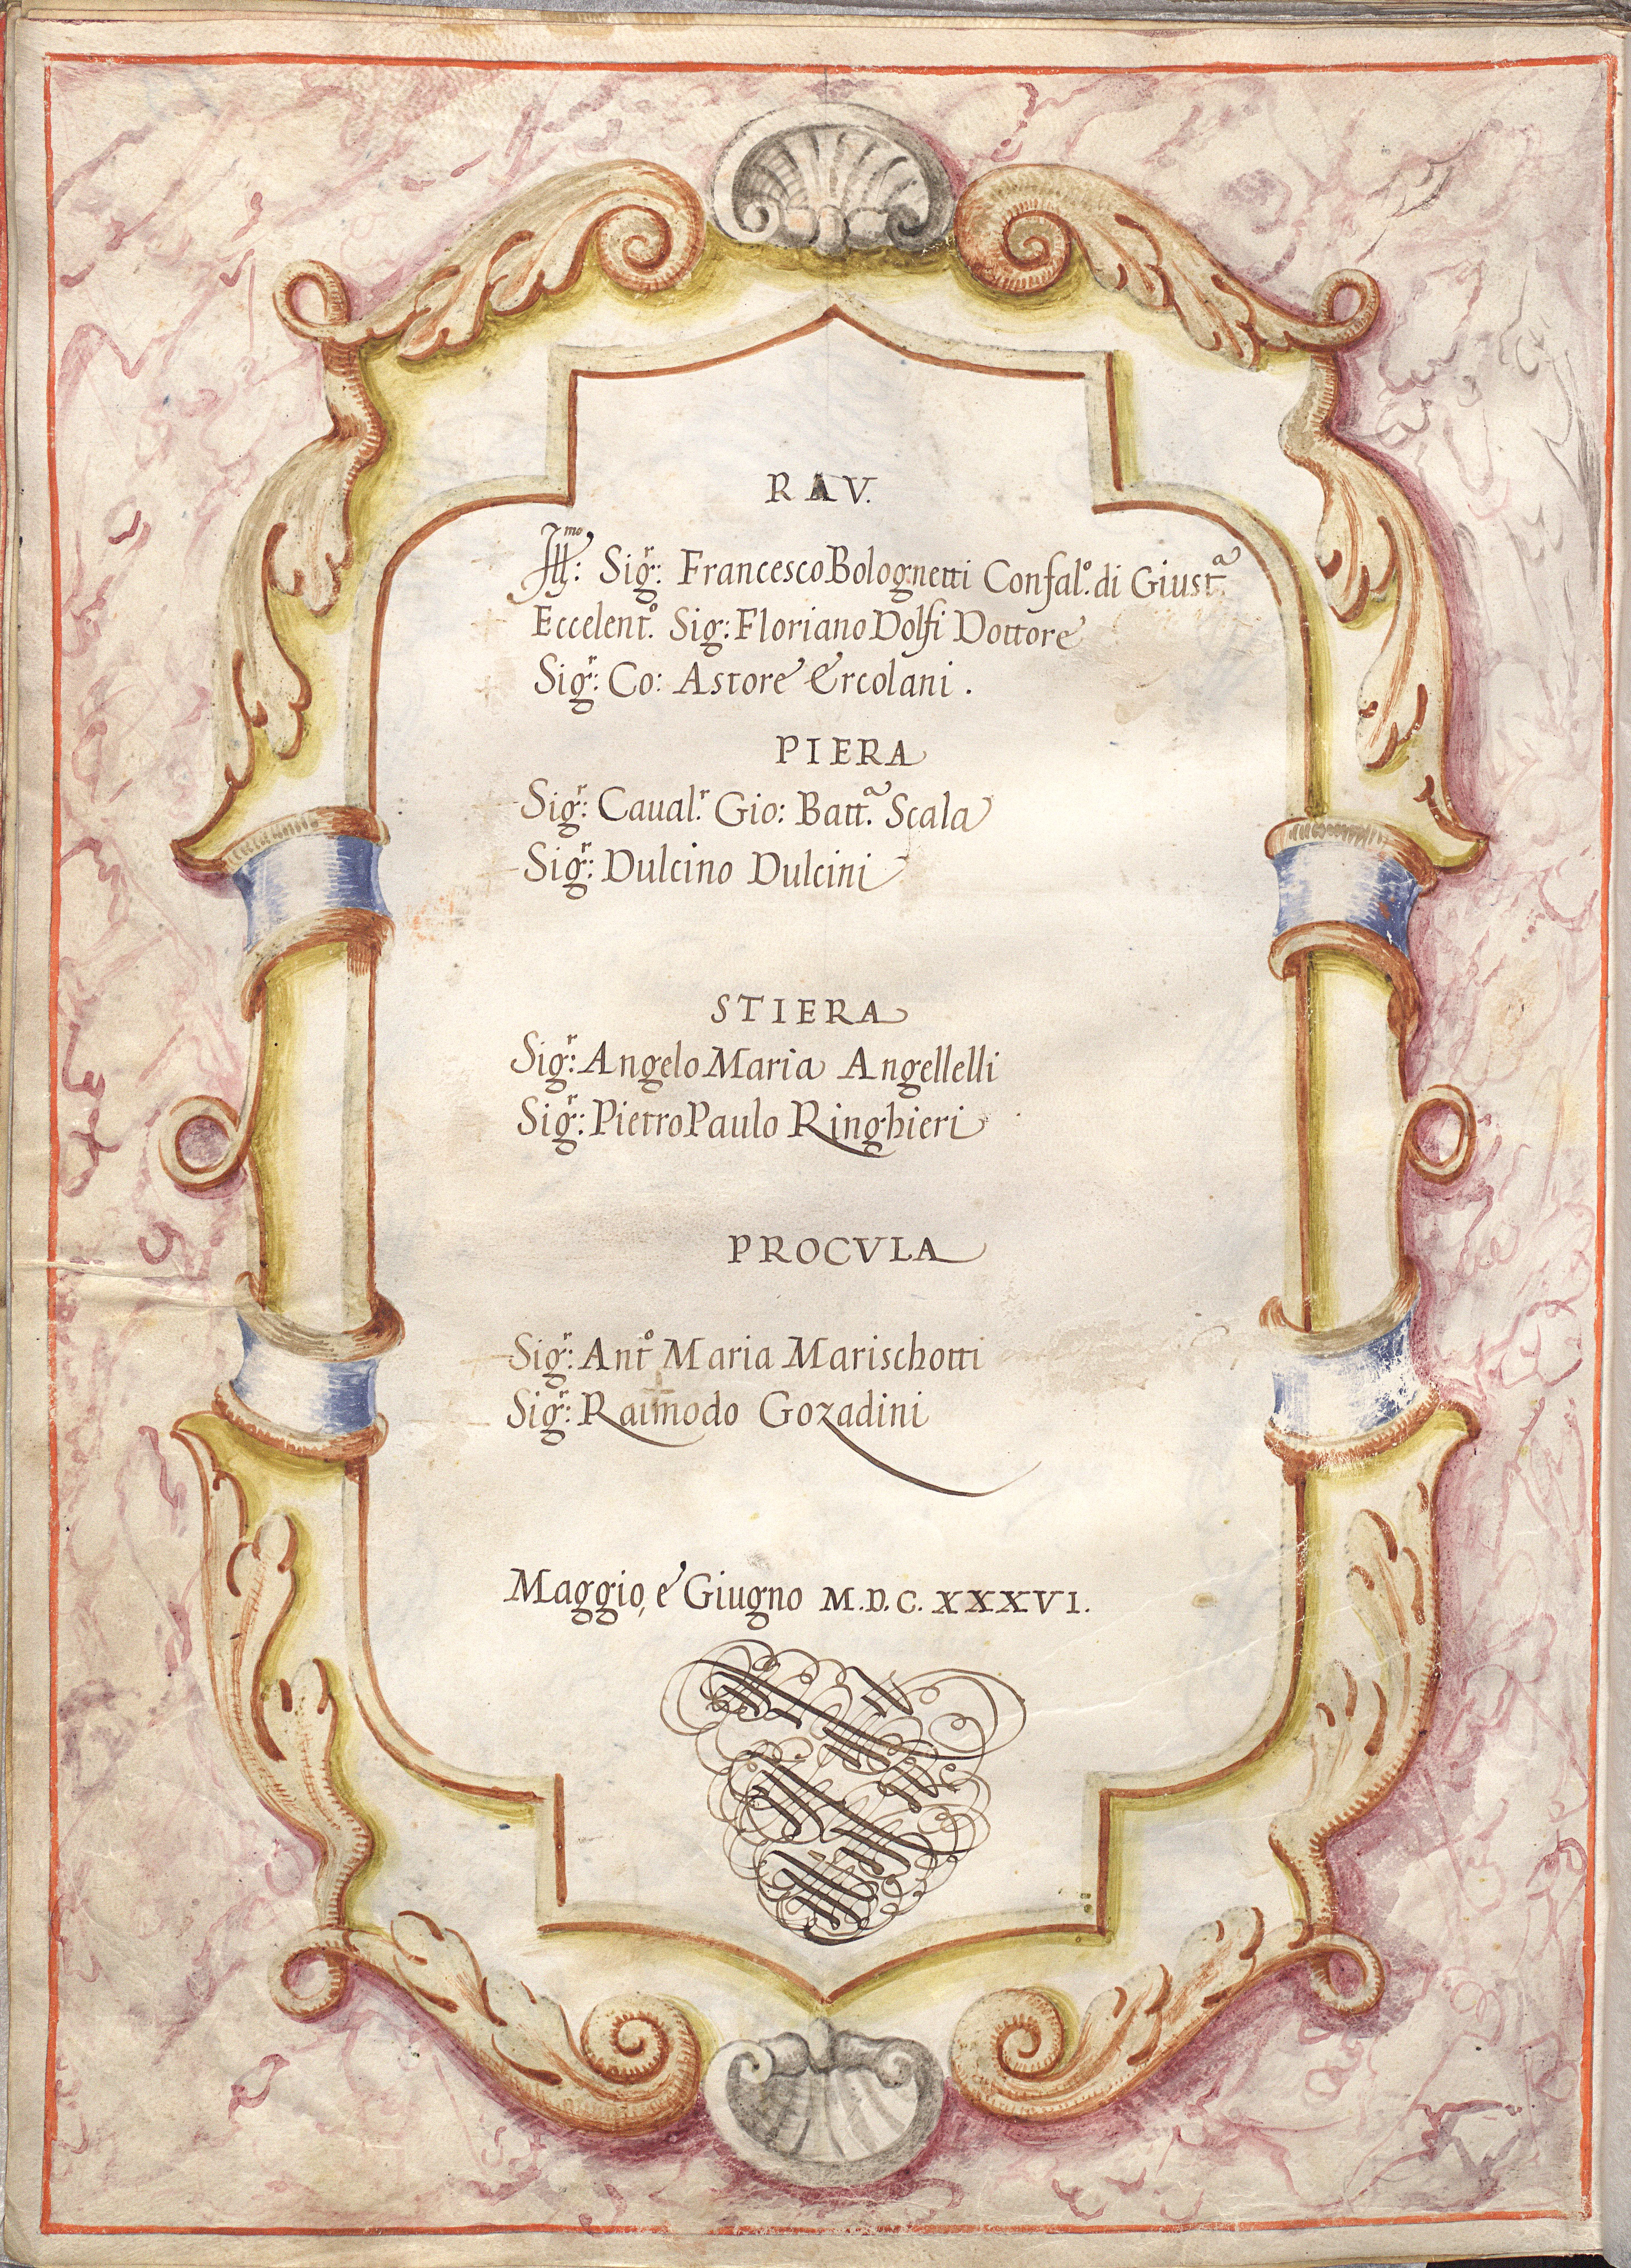 RAV.
Ill.mo: Sig.r: Francesco Bolognetti Confal.o di Giust.a
Eccelent.o Sig: Floriano Dolfi Dottore
Sig.r: Co: Astore Ercolani.
PIERA
Sig.r: Caual.r Gio: Batt.a Scala
Sig.r: Dulcino Dulcini
STIERA
Sig.r: Angelo Maria Angellelli
Sig.r: Pietro Paulo Ringhieri
PROCVLA
Sig.r: Ant.o Maria Marischotti
Sig.r: Raimodo Gozadini
Maggio, e Giugno M.D.C.XXXVI.